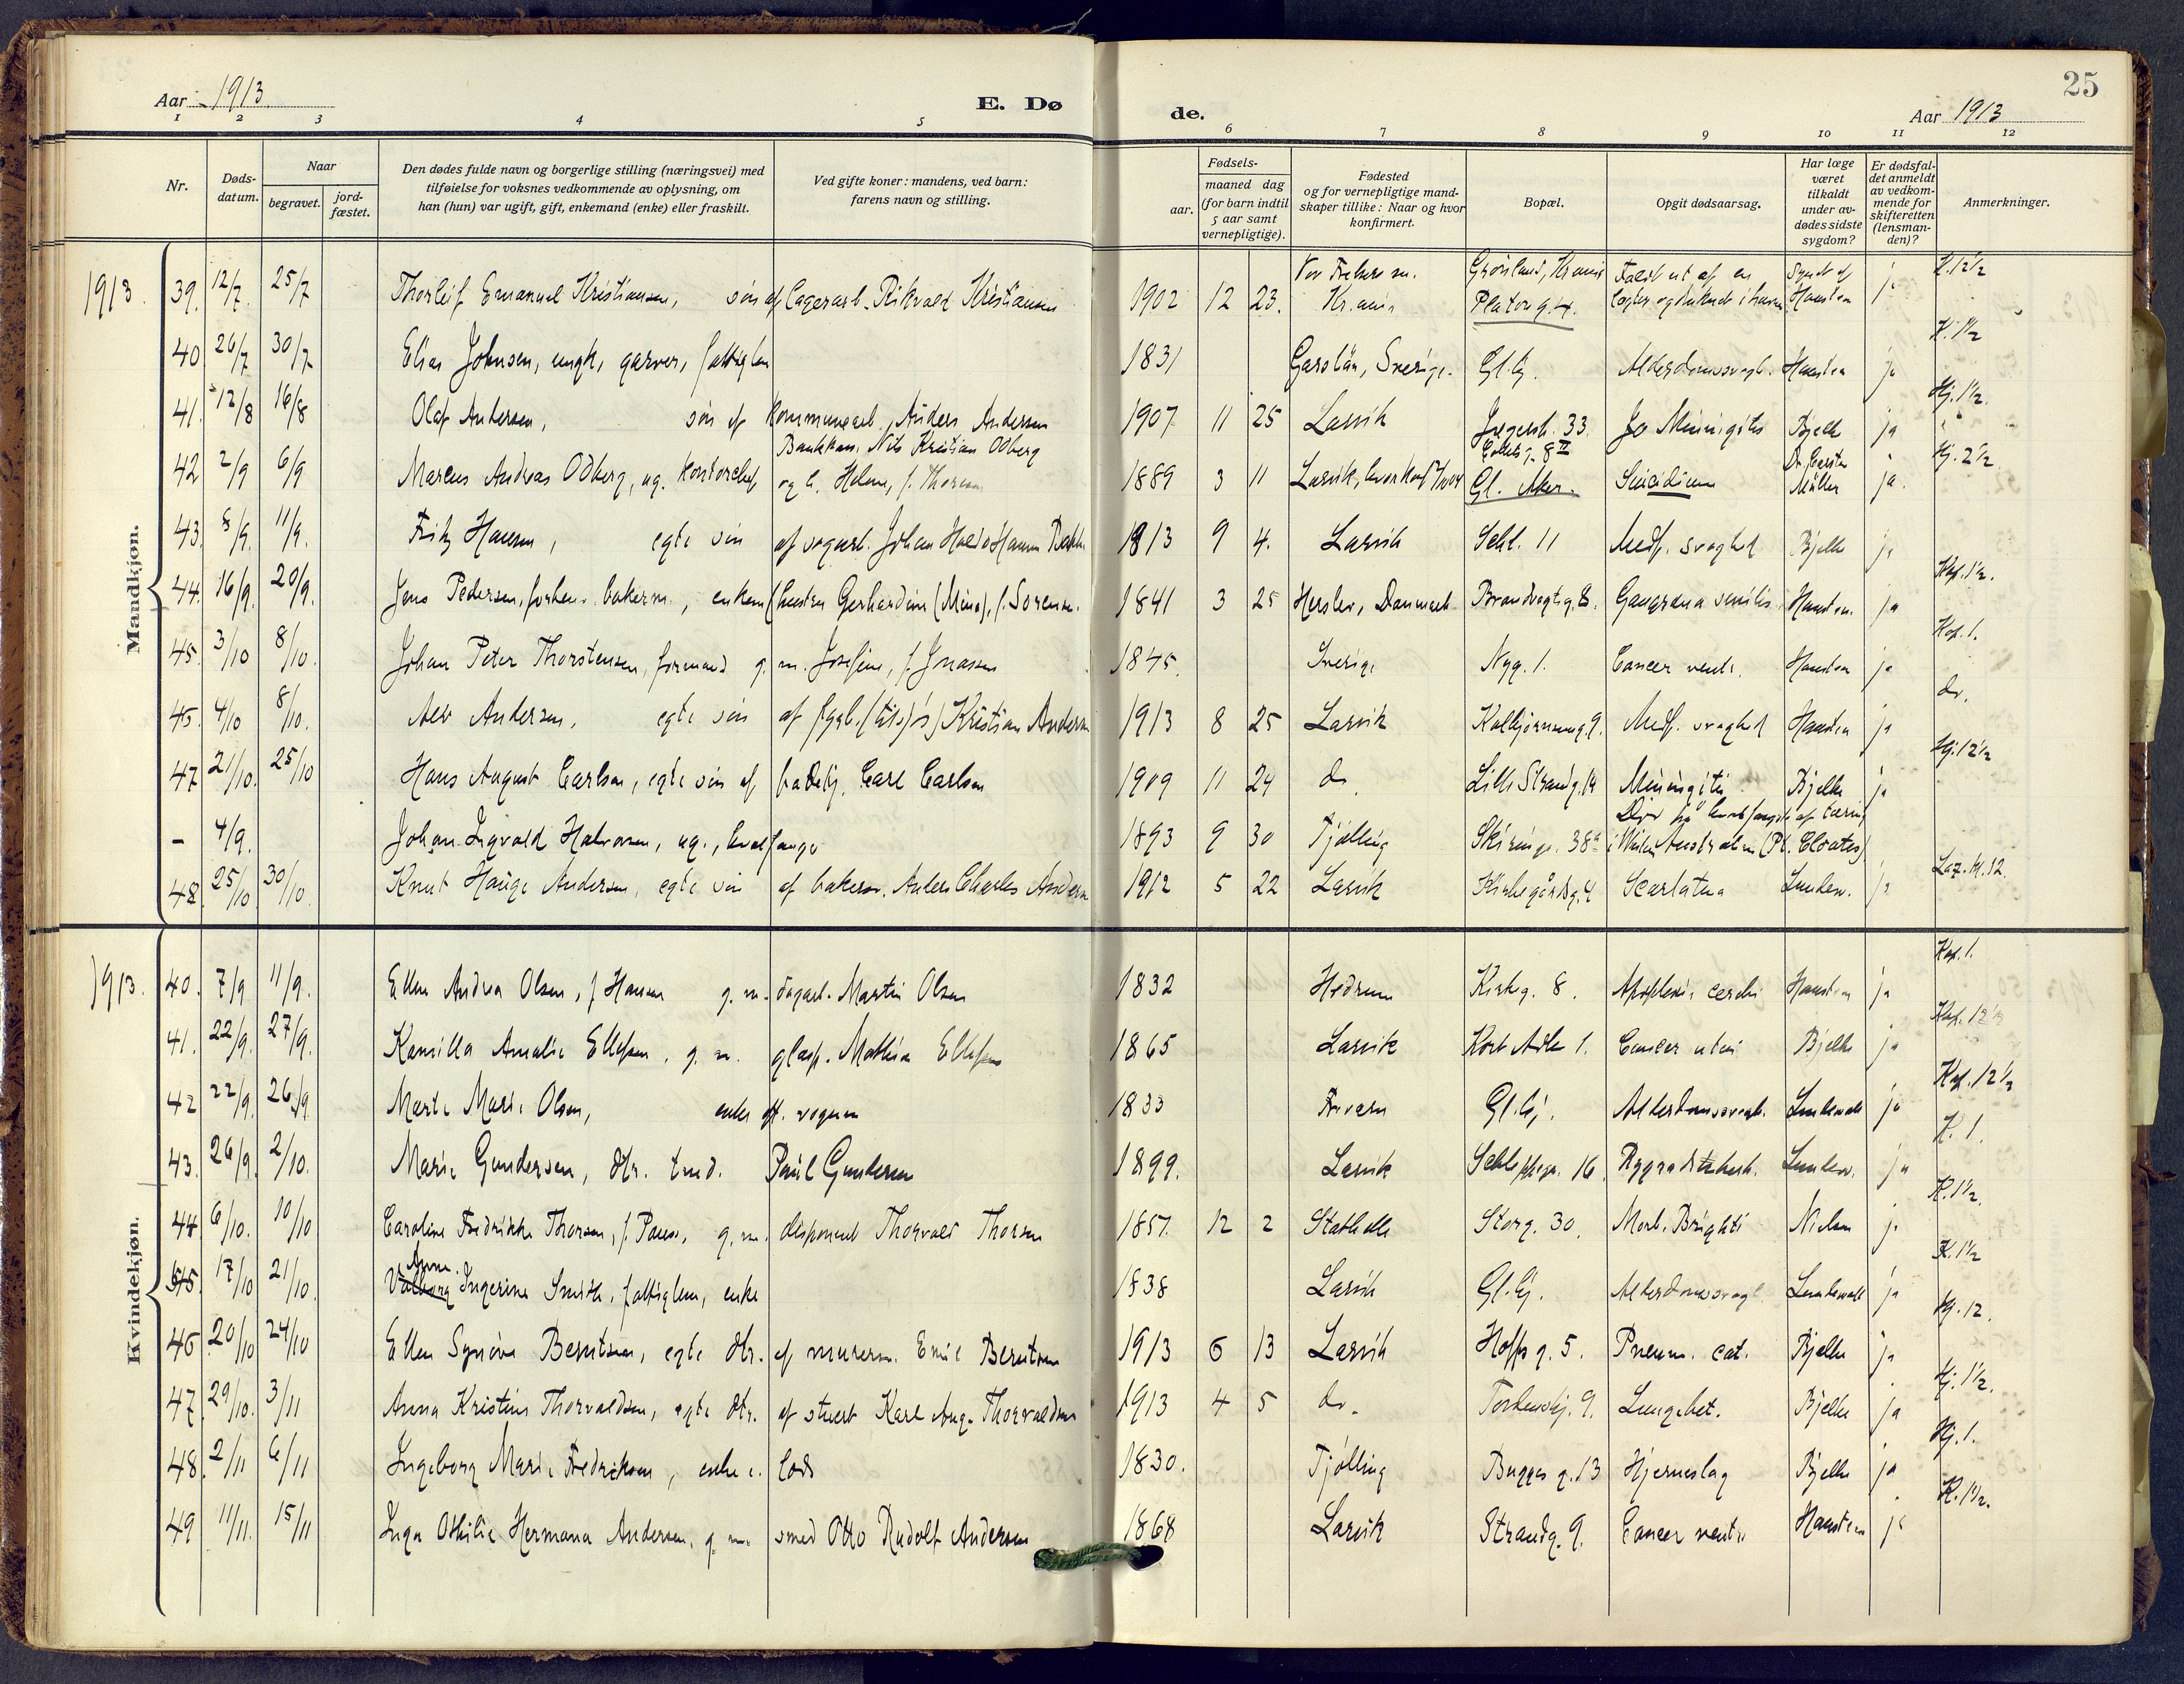 25
Aar 1913. E. Dø de. Aar 1913
1 2 3 4 5 6 7 8 9 10 11 12
Nr.
Døds-datum.
Naar
begravet.
jord-fæstet.
Den dødes fulde navn og borgerlige stilling (næringsvei) med
tilføielse for voksnes vedkommende av oplysning, om
han (hun) var ugift, gift, enkemand (enke) eller fraskilt.
Ved gifte koner: mandens, ved barn:
farens navn og stilling.
Fødsels-
aar.
maaned dag
(for barn indtil
5 aar samt
vernepligtige).
Fødested
og for vernepligtige mand-
skaper tillike: Naar og hvor
konfirmert.
Bopæl.
Opgit dødsaarsag.
Har læge
været
tilkaldt
under av-
dødes sidste
sygdom?
Er dødsfal-
det anmeldt
av vedkom-
mende for
skifteretten
(lensman-
den)?
Anmerkninger.
Mandkjøn.
1913. 39. 12/7 25/7 Thorleif Emanuel Kristiansen, søn af lagerarb. Rikvald Kristiansen 1902 12 23. Kr.ania Platoug. 4. Hansten j K. 12½
40 26/7 30/7 Elias Johnsen, ungk, garver, fattiglem 1831 Sverige. Gl.hj. Alderdomssvagh. Hansten ja K. 1½
41. 12/8 16/8 Olaf Andersen, søn af kommunearb. Anders Andersen 1907 11 25 Larvik Jegersb. 33. Bjelke ja Hj. 1½.
Bankkass. Nils Kristian Odberg
42 2/9 6/9 Marcus Andreas Odberg, ug. kontorchef og h. 1889 3 11 Larvik, Gl. Aker. Suicidium Dr Carsten Müller ja. Hj. 2½
43. 8/9. 11/9. Fritz Hansen, egte søn af Johan Hansen 1913 9 4. Larvik Schl. 11 Medf. svaghed Bjelke ja
44. 16/9. 20/9. Jens Pedersen, forhen. bakerm., enkem. (hustru Gerhardine (Mina), f. Sørensen. 1841 3 25 Danmark Brandvagtg. 8. Gangræna senilis Hansten. ja Kap. 1½.
45. 3/10 8/10. Johan Peter Thorstensen, formand g. m. Josefine, f. Jonassen 1845. Sverige Nyg. 1. Cancer ventr. Hansten ja Kap. 1.
45. 4/10 8/10. Alv Andersen, egte søn af Kristian Andersen 1913 8 25 Larvik Kolbjørnsensg. 9. Medf. svaghed Hansten ja do.
47 21/10. 25/10 Hans August Carlsen, egte søn af Carl Carlsen 1909 11 24 do. Lille Strandg. 14 Meningitis Bjelke ja Hj. 12½
- 4/9. Johan Ingvald Halvorsen, ug., hvalfanger 1893 9 30 Tjølling Skiringss. 38a Død på hvalfangst af tæring i Western Australia (Pt. Cloates)
48. 25/10 30/10. Knut Hauge Andersen, egte søn af bakersv. Anders Charles Andersen 1912 5 22 Larvik Kirkegårdsg. 4 Scarlatina Lundew. ja 12.
Kvindekjøn.
1913. 40. 7/9 11/9. Ellen Andrea Olsen, f. Hansen g. m. dagarb. Martin Olsen 1832 Hedrum Kirkeg. 8. Apoplexia cerebri Hansten ja Kap. 1.
41. 22/9. 27/9. Kamilla Amalie Ellefsen, g. m. Mathias Ellefsen 1865 Larvik Kort Adler 1. Cancer uteri Bjelke ja Kap. 12½
42 22/9. 26/9. Marte Marie Olsen, enke eft. vognm. 1833 Gl.hj. Alderdomssvagh. Lundewall ja Kap. 12½
43. 26/9. 2/10. Marie Gundersen, dtr. tmd. Paul Gundersen 1899. Larvik 16 Lundew. ja K. 1.
44 6/10. 10/10 Caroline Fredrikke Thorsen, f. Pauss, g. m. disponent Thorvald Thorsen 1857. 12 2 Stathelle Storg. 30. Morb. Brighti Nielsen ja K. 1½.
Anna
45. 17/10 21/10. Valborg Ingerine Smith, fattiglem, enke 1838 Larvik Gl.hj. Alderdomssvagh. Lundewall ja K. 1½
46. 20/10 24/10 Ellen Synøve Berntsen, egte dtr. af murerm. Emil Berntsen 1913 6 13 Larvik Hoffs g. 5. Pneum. cat. Bjelke ja Hj. 12.
47. 29/10. 3/11 Anna Kristine Thorvaldsen, egte dtr. af stuert Karl Aug. Thorvaldsen 1913 4 5 do. Tordenskj. 9. Lungebet. Bjelke ja Hj. 1½.
48. 2/11 6/11 Ingeborg Marie Fredriksen, enke e. lods 1830. Tjølling Bugges g. 13 Hjerneslag Bjelke ja Hj. 1.
49 11/11. 15/11 Inga Othilie Hermana Andersen, g. m. smed Otto Rudolf Andersen 1868 Larvik Strandg. 9. Cancer ventr. Hansten ja K. 1½.